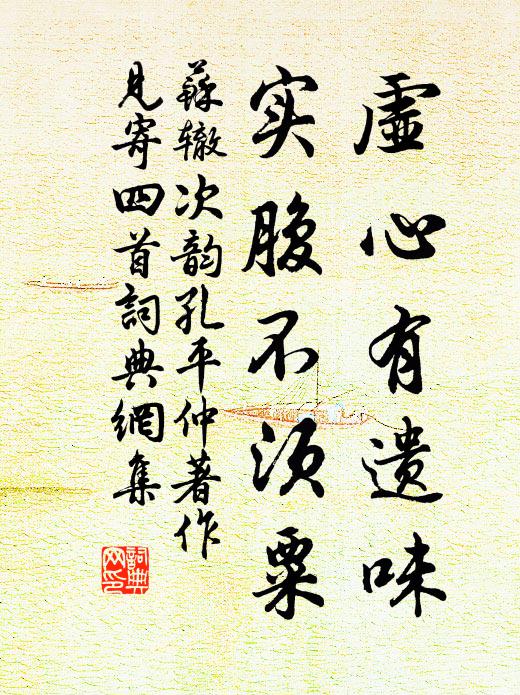 虚心有遗味
实腹不须粟
蘇辙次韵孔平仲著作
见寄四首詞典網集
詞典网印